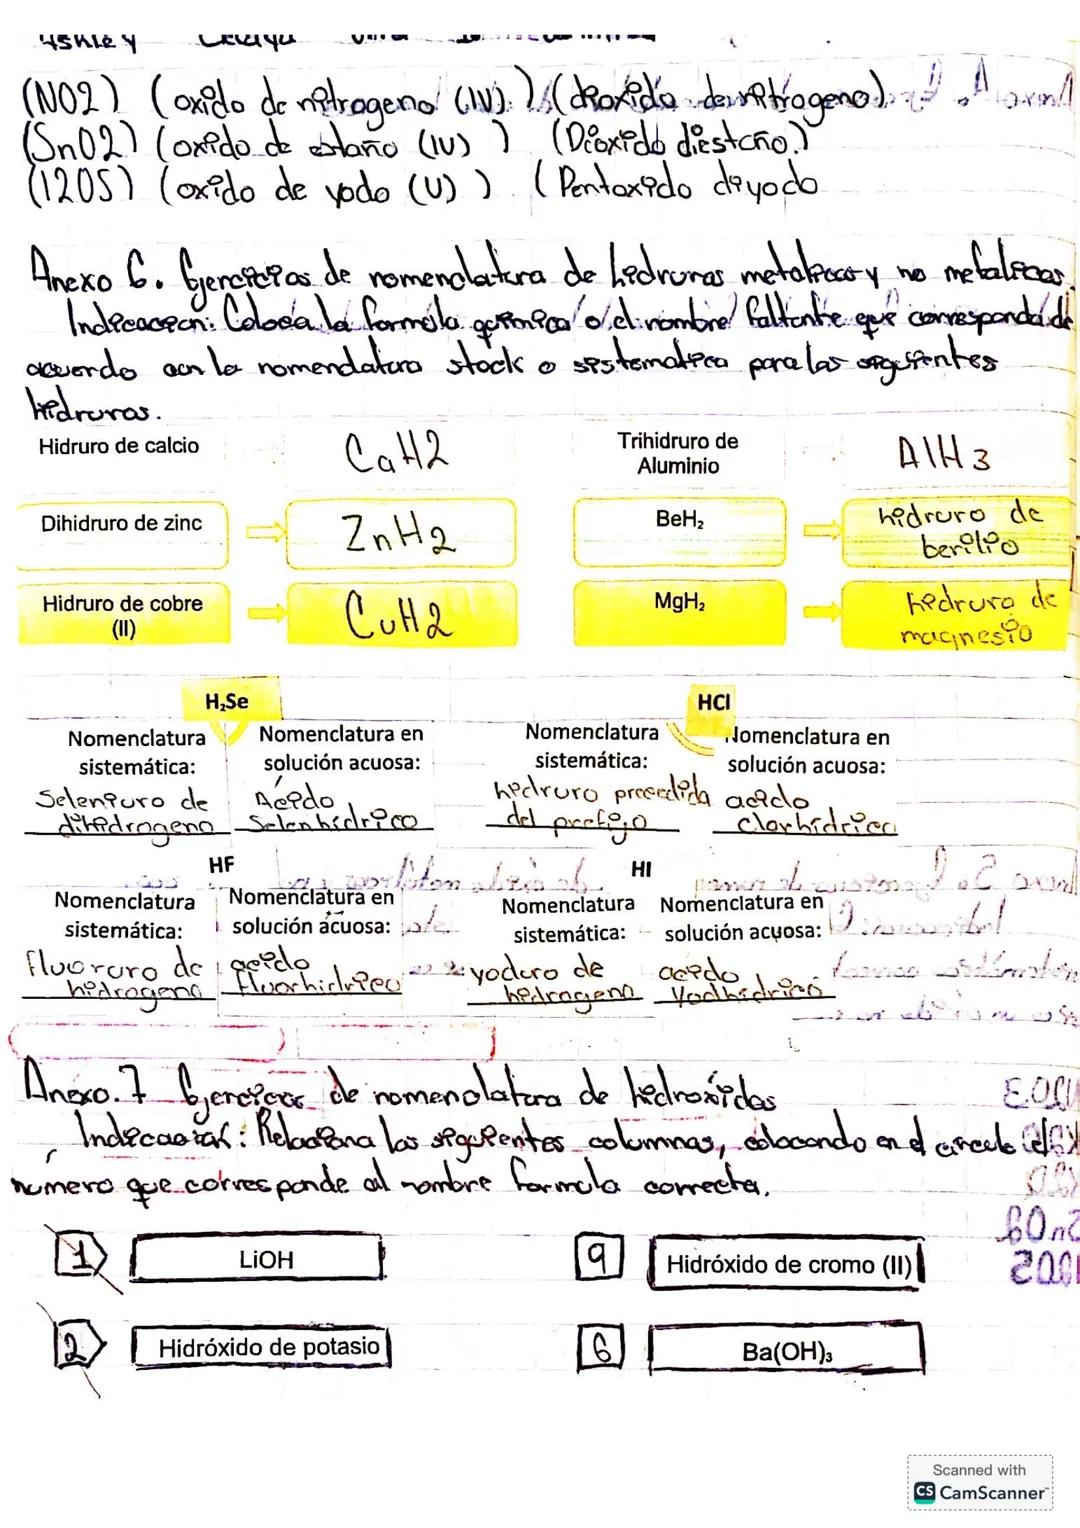 Ashley
(NO2) (oxido de nitrogeno (IV).) (dioxido de nitrogeno).
(SnO2) (oxido de estaño (IV) ) (Dioxido diestaño.)
(I2O5) (oxido de yodo (V) ) ( Pentoxido diyodo
Anexo 6. Ejercicios de nomenclatura de hidruros metalicos y no metalicos.
Indicacion: Coloca la formula quimica o el nombre faltante que corresponda de
acuerdo con la nomenclatura stock o sistematica para las siguientes
hidruros.
Hidruro de calcio CaH2 Trihidruro de Aluminio AlH3
Dihidruro de zinc ZnH2 BeH₂ hidruro de berilio
Hidruro de cobre (II) CuH2 MgH₂ hidruro de magnesio
H₂Se HCl
Nomenclatura sistemática: Nomenclatura en solución acuosa: Nomenclatura sistemática: Nomenclatura en solución acuosa:
Seleniuro de dihidrogeno Ácido Selenhídrico hidruro precedida del prefijo acido Clorhídrico
HF HI
Nomenclatura sistemática: Nomenclatura en solución acuosa: Nomenclatura sistemática: Nomenclatura en solución acuosa:
fluoruro de hidrogeno acido fluorhidrico yoduro de hidrogeno acido Yodhídrico
Anexo. 7 Ejercicios de nomenclatura de hidroxidos
Indicacion: Relaciona las siguientes columnas, colocando en el circulo el
numero que corresponde al nombre formula correcta.
1 LiOH 9 Hidróxido de cromo (II)
2 Hidróxido de potasio 6 Ba(OH)₃
Scanned with
CS CamScanner